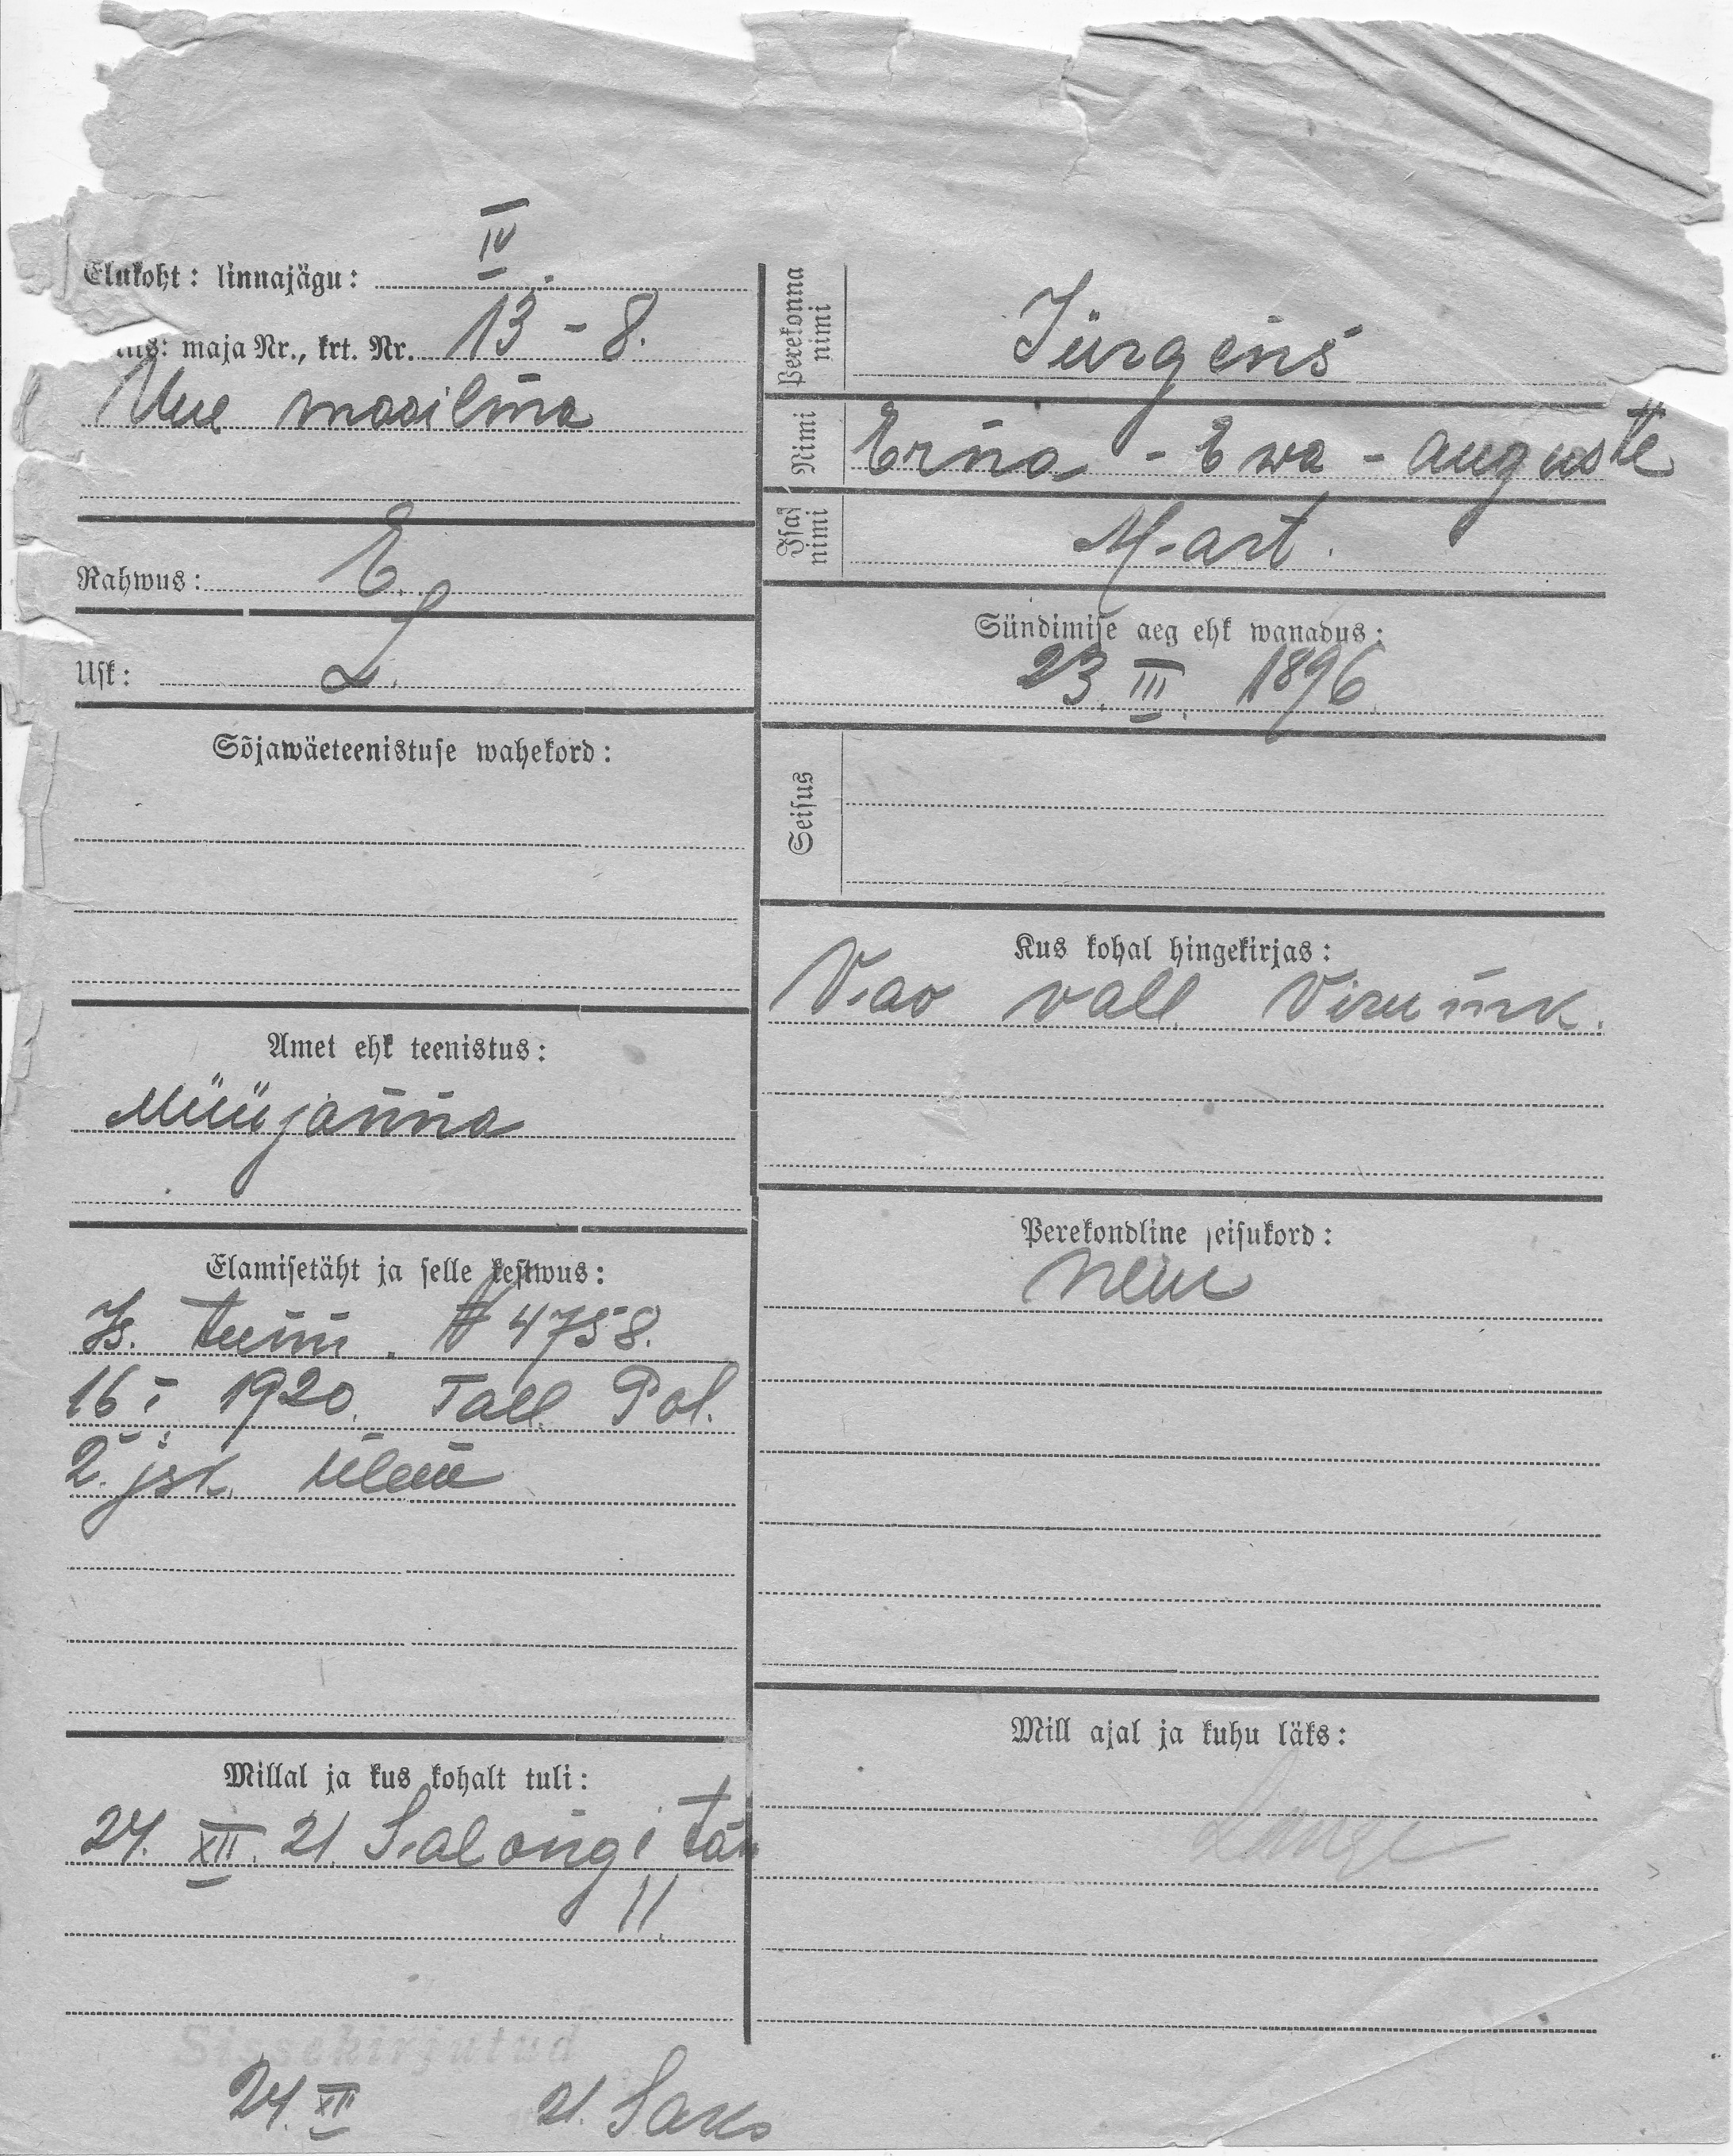 IV
Elukoht: linnajägu:
maja Nr., krt. Nr. 13 - 8.
Uue maailma
Rahwus: E.
Usk: L.
Sõjawäeteenistuse wahekord:
Amet ehk teenistus:
Müüjanna
Elamisetäht ja selle kestwus:
Is. tunn. № 4758.
16 I. 1920. Tall. Pol.
2. jsk. ülem
Millal ja kus kohalt tuli:
24. XII. 21. Salongi tän
11.
Sissekirjutud
24. XII 21. Saks
Perekonna nimi
Jürgens
Nimi
Erna - Ewa - Auguste
Isa nimi
Mart.
Sündimise aeg ehk wanadus:
23. III. 1896.
Seisus
Kus kohal hingekirjas:
Vao vall Virumk.
Perekondline seisukord:
Neiu
Mill ajal ja kuhu läks: